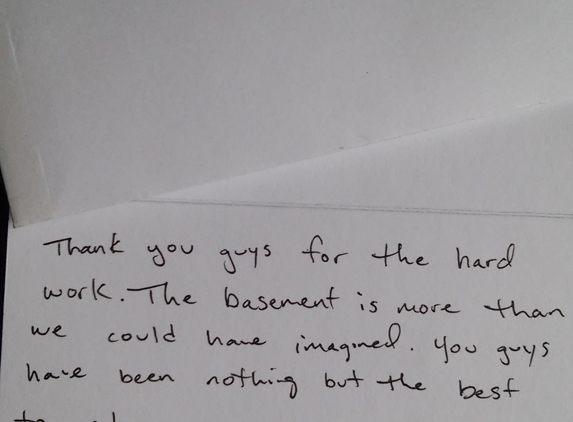 Thank you guys for the hard
work. The basement is more than
we could have imagined. You guys
have been nothing but the best